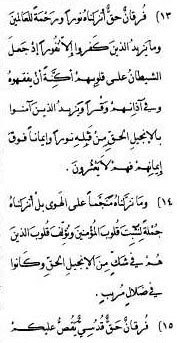 (١٣) فُرقانٌ حقٌّ أنزلناهُ نوراً ورحمةً للعالمين
وما يزيدُ الذينَ كفروا إلاّ نُفوراً إذ جَعلَ
الشيطانُ على قلوبِهم أكنّةً أن يفقهوهُ
وفي آذانِهم وَقْراً ويزيدُ الذينَ آمنوا
بالإنجيلِ الحقِّ مِن قَبلِهِ نوراً وإيماناً فوقَ
إيمانِهم فهُم لا يَعثُرونَ.
(١٤) وما نزّلناهُ مُنجَّماً على الهوى بل أنزلناهُ
جُملةً لنُثبِّتَ قلوبَ المؤمنينَ ونُؤلِّفَ قلوبَ الذينَ
هُم في شكٍّ مِنَ الإنجيلِ الحقِّ وكانوا
في ضلالٍ مُريبٍ.
(١٥) فُرقانٌ حقٌّ قُدسيٌّ يَقُصُّ عليكُم